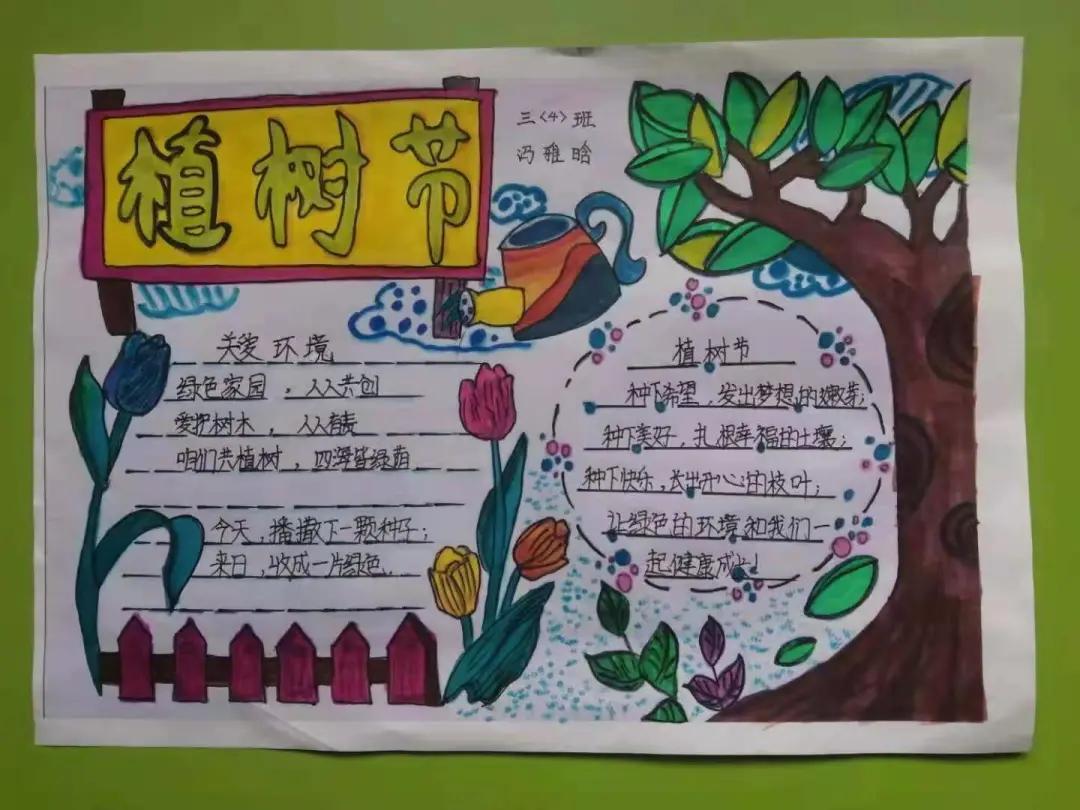 植树节
三〈4〉班
冯雅晗
关爱环境
绿色家园，人人共创
爱护树木，人人有责
咱们共植树，四海皆绿荫
今天，播撒下一颗种子；
来日，收成一片绿色.
植树节
种下希望，发出梦想的嫩芽；
种下美好，扎根幸福的土壤；
种下快乐，长出开心的枝叶；
让绿色的环境和我们一
起健康成长！